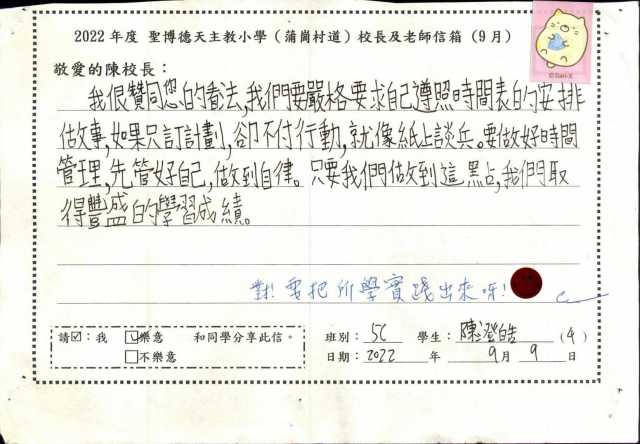 2022 年度 聖博德天主教小學（蒲崗村道）校長及老師信箱（9 月）
敬愛的陳校長：
我很贊同您的看法，我們要嚴格要求自己遵照時間表的安排
做事，如果只訂計劃，卻不付行動，就像紙上談兵。要做好時間
管理，先管好自己，做到自律。只要我們做到這點，我們取
得豐盛的學習成績。
對！要把所學實踐出來呀！
請☑：我 ☑樂意 和同學分享此信。
□不樂意
班別：5C 學生：陳澄皓 (4)
日期：2022 年 9 月 9 日